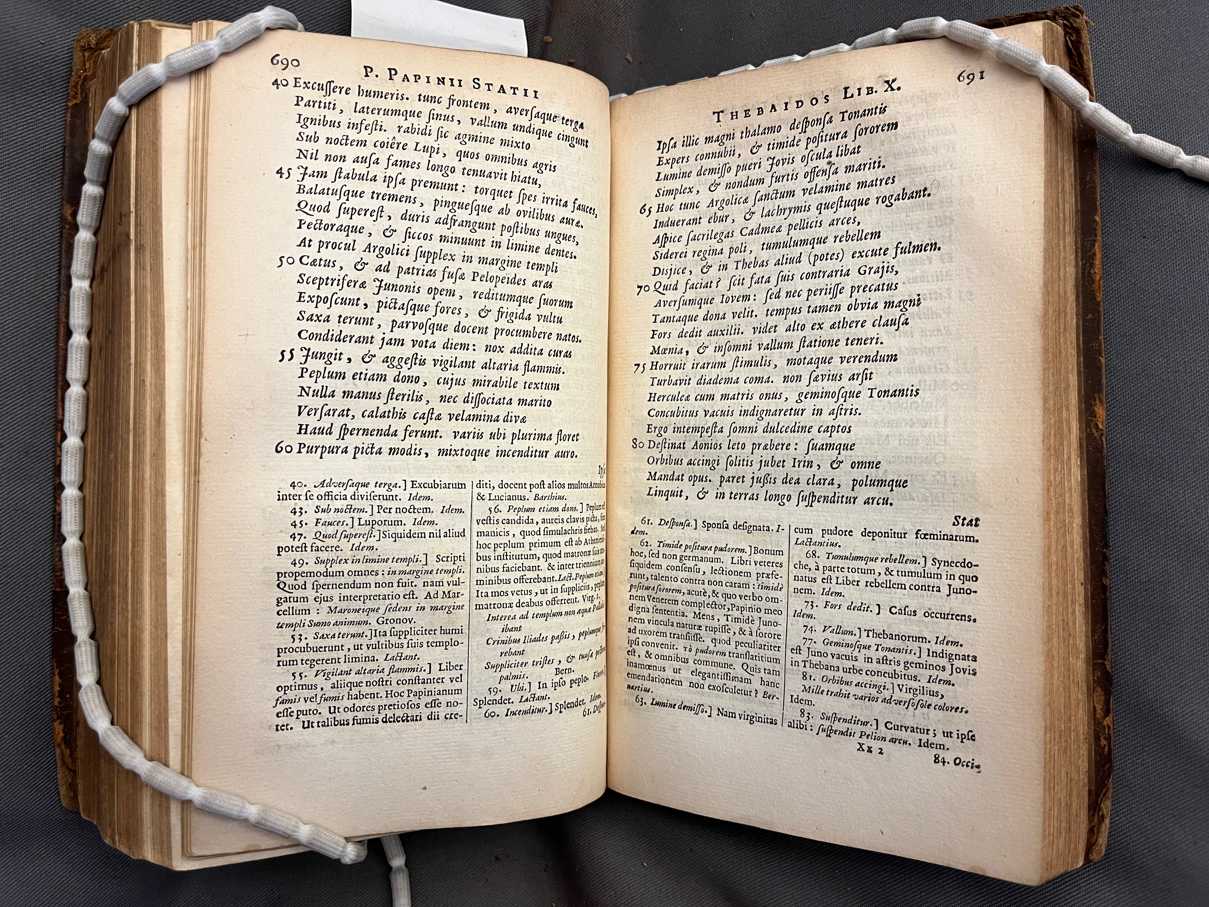 690
P. PAPINII STATII
40 Excuſſere humeris. tunc frontem, averſaque terga
Partiti, laterumque ſinus, vallum undique cingunt
Ignibus infeſti. rabidi ſic agmine mixto
Sub noctem coiêre Lupi, quos omnibus agris
Nil non auſa fames longo tenuavit hiatu,
45 Jam ſtabula ipſa premunt: torquet ſpes irrita fauces,
Balatuſque tremens, pingueſque ab ovilibus auræ.
Quod ſupereſt, duris adfrangunt poſtibus ungues,
Pectoraque, & ſiccos minuunt in limine dentes.
At procul Argolici ſupplex in margine templi
50 Cœtus, & ad patrias fuſæ Pelopeides aras
Sceptriferæ Junonis opem, reditumque ſuorum
Expoſcunt, pictaſque fores, & frigida vultu
Saxa terunt, parvoſque docent procumbere natos.
Condiderant jam vota diem: nox addita curas
55 Jungit, & aggeſtis vigilant altaria flammis.
Peplum etiam dono, cujus mirabile textum
Nulla manus ſterilis, nec diſſociata marito
Verſarat, calathis caſtæ velamina divæ
Haud ſpernenda ferunt. variis ubi plurima floret
60 Purpura picta modis, mixtoque incenditur auro.
Ipſ
40. Adverſaque terga.] Excubiarum
inter ſe officia diviſerunt. Idem.
43. Sub noctem.] Per noctem. Idem.
45. Fauces.] Luporum. Idem.
47. Quod ſupereſt.] Siquidem nil aliud
poteſt facere. Idem.
49. Supplex in limine templi.] Scripti
propemodum omnes: in margine templi.
Quod ſpernendum non fuit. nam vul-
gatum ejus interpretatio eſt. Ad Mar-
cellum: Maroneoque ſedens in margine
templi Sumo animum. Gronov.
53. Saxa terunt.] Ita ſuppliciter humi
procubuerunt, ut vultibus ſuis templo-
rum tegerent limina. Lactant.
55. Vigilant altaria flammis.] Liber
optimus, aliique noſtri conſtanter vel
famis vel fumis habent. Hoc Papinianum
eſſe puto. Ut odores pretioſos eſſe no-
tet. Ut talibus fumis delectari dii cre-
diti, docent poſt alios multos Arnobius
& Lucianus. Barthius.
56. Peplum etiam dono.] Peplum eſt
veſtis candida, aureis clavis picta, ſine
manicis, quod ſimulachris fiebat. Sed
hoc peplum primum eſt ab Athenienſi-
bus inſtitutum, quod matronæ ſuis ma-
nibus faciebant. & inter triennium
minibus offerebant. Lact. Peplum etiam
Ita mos vetus, ut in ſuppliciis, peplum
matronæ deabus offerrent. Virg. I.
Interea ad templum non æquæ Palladis
ibant
Crinibus Iliades paſſis, peplumque fe-
rebant
Suppliciter triſtes, & tunſæ pectora
palmis. Bern.
59. Ubi.] In ipſo peplo. Floret,
Splendet. Lactant.
60. Incenditur.] Splendet. Idem.
61. Deſponſ
THEBAIDOS LIB. X.
691
Ipſa illic magni thalamo deſponſa Tonantis
Expers connubii, & timide poſitura ſororem
Lumine demiſſo pueri Jovis oſcula libat
Simplex, & nondum furtis offenſa mariti.
65 Hoc tunc Argolicæ ſanctum velamine matres
Induerant ebur, & lachrymis queſtuque rogabant.
Aſpice ſacrilegas Cadmeæ pellicis arces,
Siderei regina poli, tumulumque rebellem
Disjice, & in Thebas aliud (potes) excute fulmen.
70 Quid faciat? ſcit fata ſuis contraria Grajis,
Averſumque Iovem: ſed nec periiſſe precatus
Tantaque dona velit. tempus tamen obvia magni
Fors dedit auxilii. videt alto ex æthere clauſa
Mœnia, & inſomni vallum ſtatione teneri.
75 Horruit irarum ſtimulis, motaque verendum
Turbavit diadema coma. non ſævius arſit
Herculea cum matris onus, geminoſque Tonantis
Concubitus vacuis indignaretur in aſtris.
Ergo intempeſta ſomni dulcedine captos
80 Deſtinat Aonios leto præbere: ſuamque
Orbibus accingi ſolitis jubet Irin, & omne
Mandat opus. paret juſſis dea clara, polumque
Linquit, & in terras longo ſuſpenditur arcu.
Stat
61. Deſponſa.] Sponſa deſignata. I-
dem.
62. Timide poſitura pudorem.] Bonum
hoc, ſed non germanum. Libri veteres
ſiquidem conſenſu, lectionem præfe-
runt, talento contra non caram: timidè
poſitura ſororem, acutè, & quo verbo om-
nem Venerem complector, Papinio meo
digna ſententia. Mens, Timidè Juno-
nem vincula naturæ rupiſſe, & à ſorore
ad uxorem tranſiſſe. quod peculiariter
ipſi convenit. Τὸ pudorem tranſlatitium
eſt, & omnibus commune. Quis tam
inamœnus ut elegantiſſimam hanc
emendationem non exoſculetur? Ber-
nartius.
63. Lumine demiſſo.] Nam virginitas
cum pudore deponitur fœminarum.
Lactantius.
68. Tumulumque rebellem.] Synecdo-
che, à parte totum, & tumulum in quo
natus eſt Liber rebellem contra Juno-
nem. Idem.
73. Fors dedit.] Caſus occurrens.
Idem.
74. Vallum.] Thebanorum. Idem.
77. Geminoſque Tonantis.] Indignata
eſt Juno vacuis in aſtris geminos Jovis
in Thebana urbe concubitus. Idem.
81. Orbibus accingi.] Virgilius,
Mille trahit varios adverſo ſole colores.
Idem.
83. Suſpenditur.] Curvatur; ut ipſe
alibi: ſuſpendit Pelion arcu. Idem.
Xx 2
84. Occi-